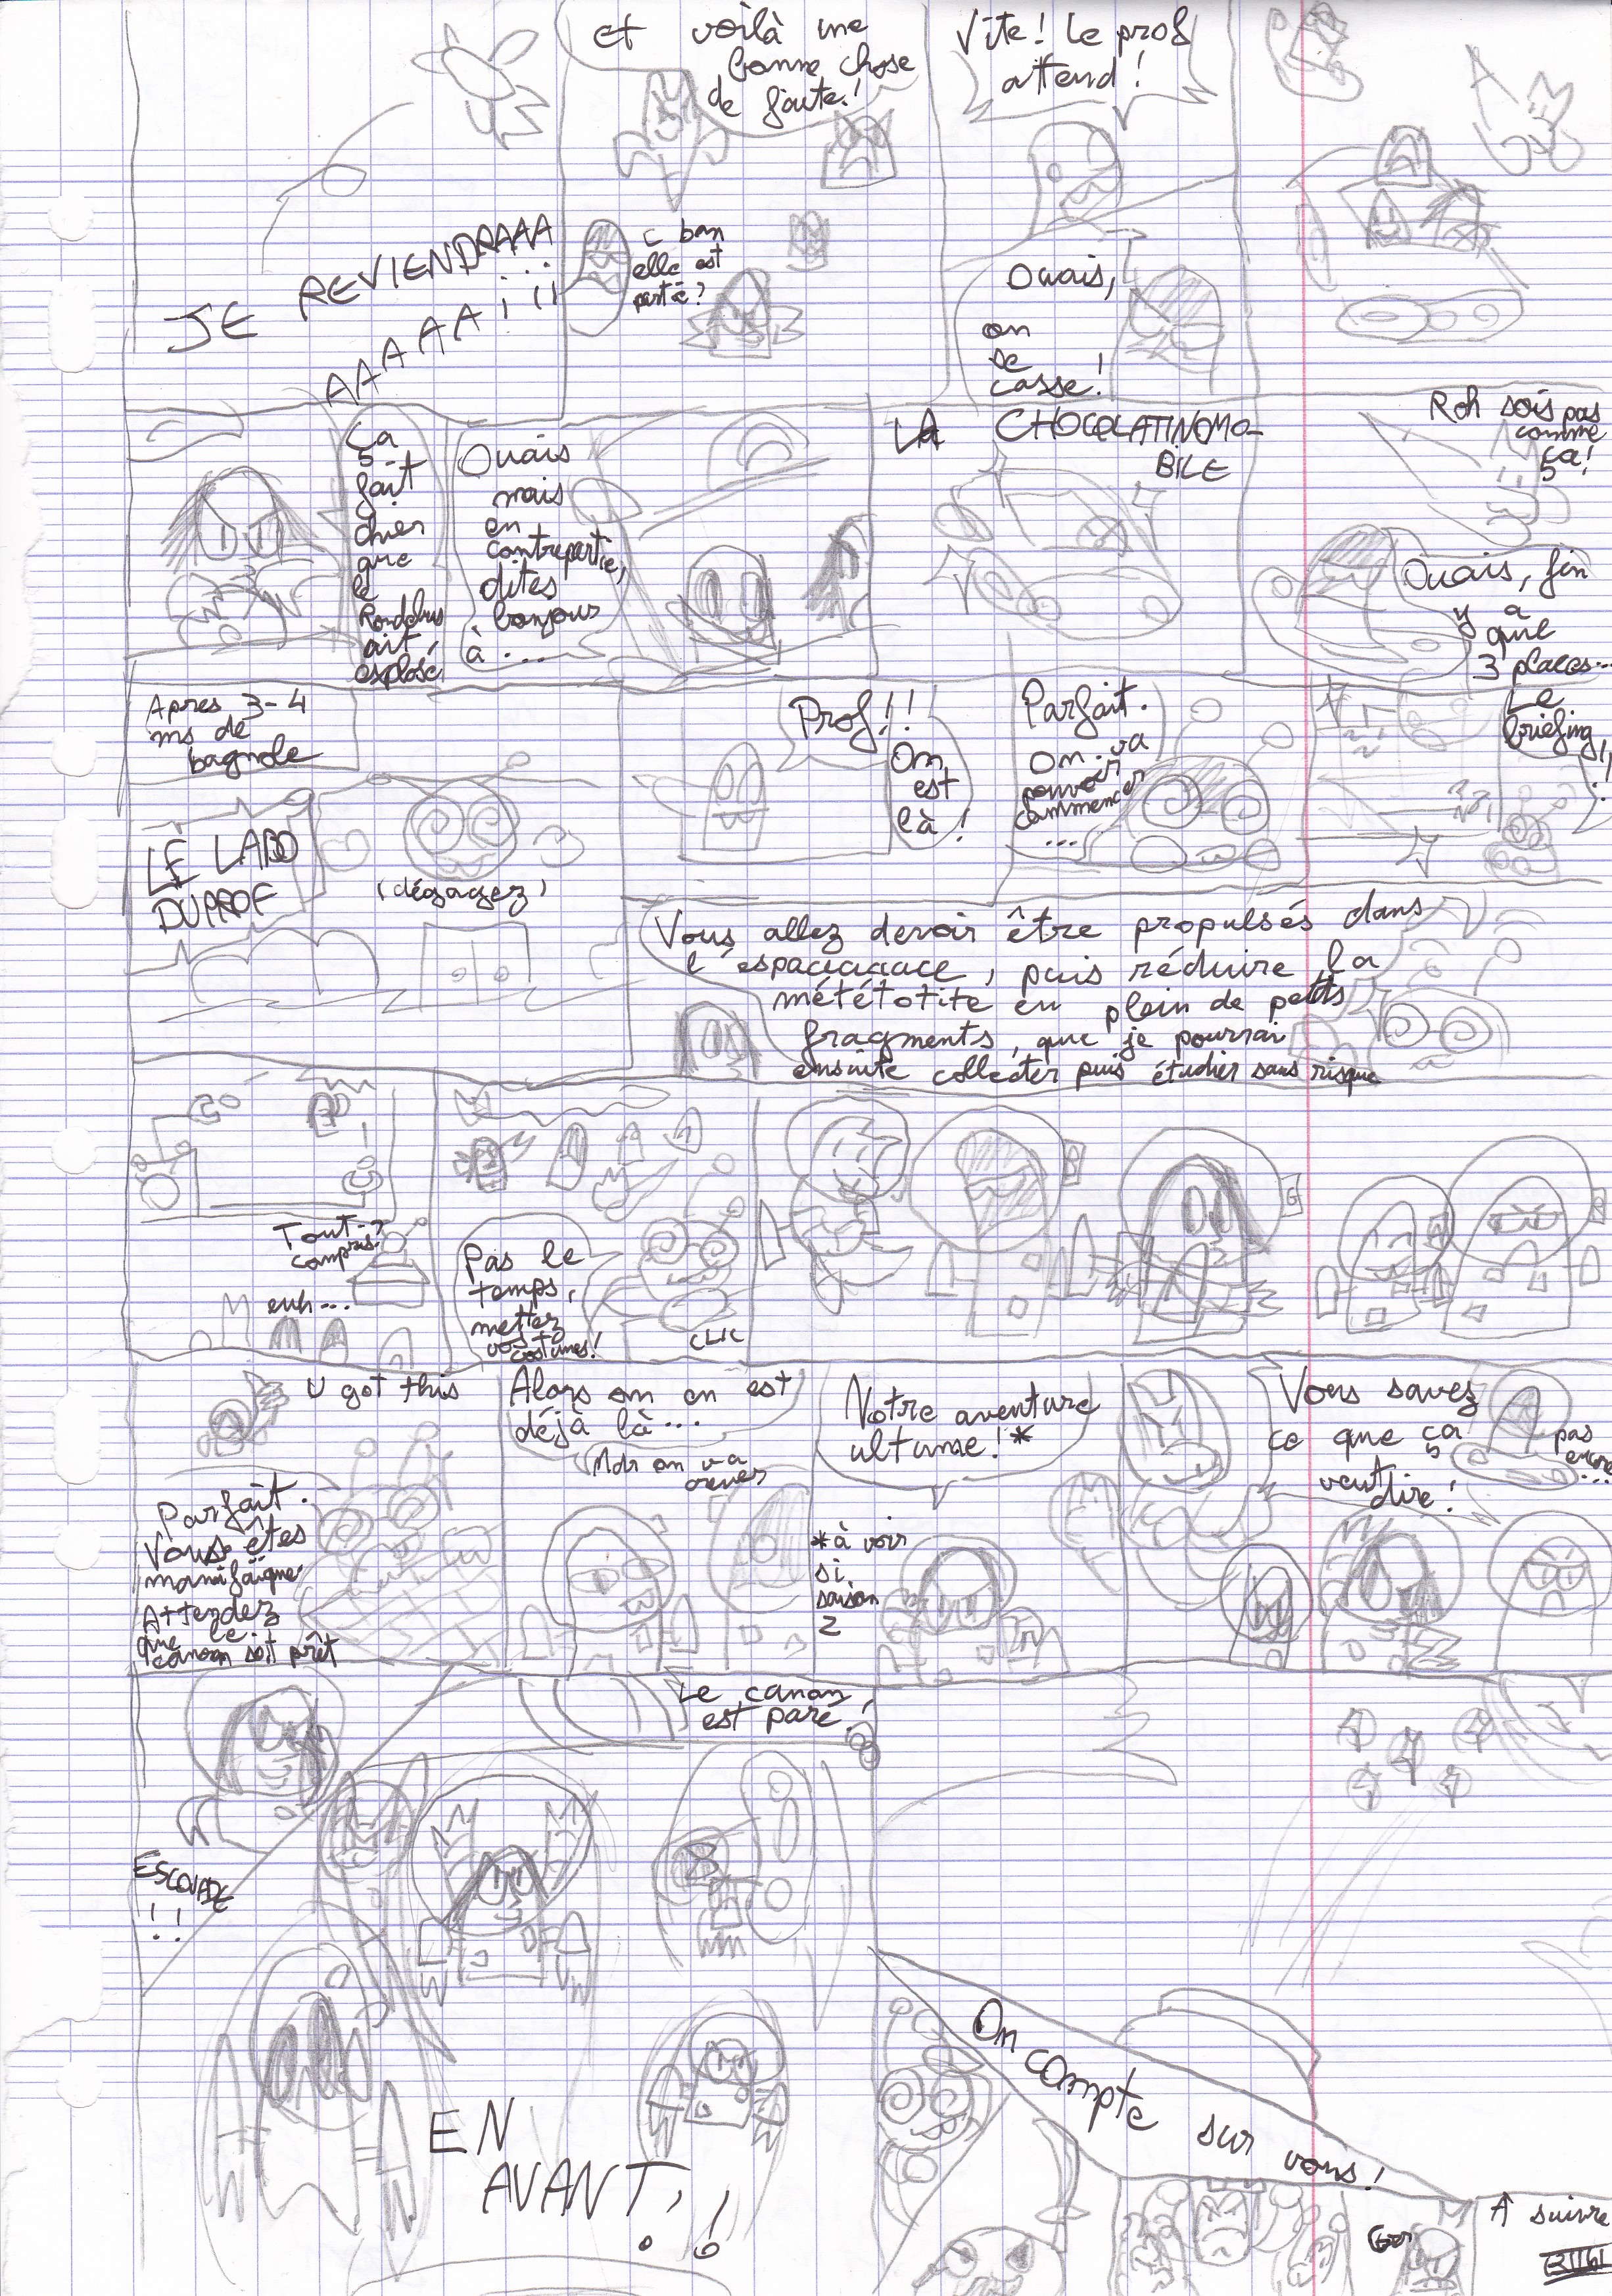 JE REVIENDRAAAA
AAAAAA¡¡¡
et voilà une
bonne chose
de faite!
C bon
elle est
partie?
Vite! Le prof
attend!
Ouais,
on
se
casse!
ça
fait
chier
que
le
Rondobus
ait
explosé
Ouais
mais
en
contrepartie,
dites
bonjour
à ...
LA CHOCOLATINOMO-
BILE
Roh sois pas
comme
ça!
Ouais, fin
y a
que
3 places...
Apres 3-4
ms de
bagnole
LE LABO
DU PROF
(dégagez)
Prof!!
On
est
là!
Parfait.
On va
pouvoir
commencer
...
Le
briefing!!
Vous allez devoir être propulsés dans
l'espaciaciace, puis réduire la
mététotite en plein de petits
fragments, que je pourrai
ensuite collecter puis étudier sans risque
Tout
compris?
euh...
Pas le
temps,
mettez
vos
costumes!
CLIC
U got this
Parfait.
Vous êtes
manifaique
Attendez
que le
canon soit prêt
Alors on en est
déjà là...
Mdr on va
crever
Notre aventure
ultime!*
*à voir
si
saison
2
Vous savez
ce que ça
veut
dire!
pas
encore
...
ESCOUADE
!!
Le canon
est paré!
EN
AVANT!!
On compte sur vous!
A suivre